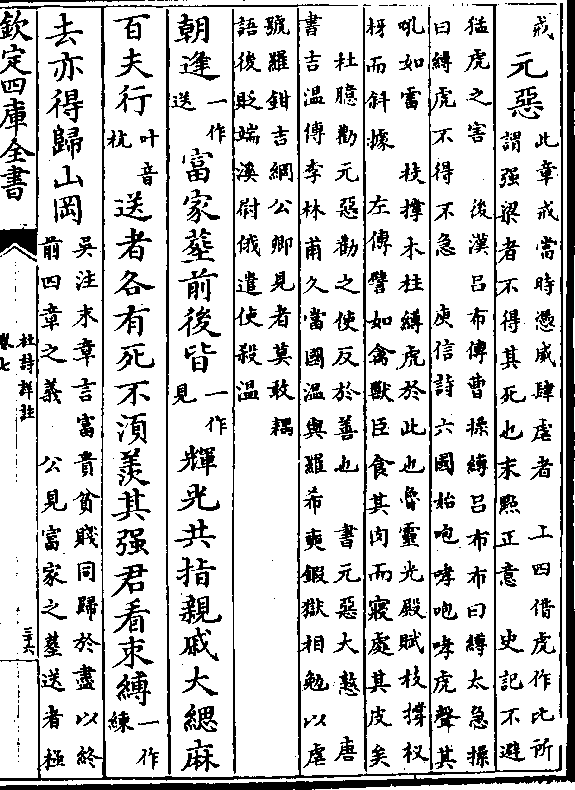 戒
元惡
此章戒當時憑威肆虐者　上四借虎作比所
謂强梁者不得其死也末點正意　史記不避
猛虎之害　後漢吕布傳曹操縛吕布布曰縛太急操
曰縛虎不得不急　庾信詩六國始咆哮咆哮虎聲其
吼如雷　枝撐木柱縛虎於此也魯靈光殿賦枝撐杈
枒而斜據　左傳譬如禽獸臣食其肉而寢處其皮矣
杜臆勸元惡勸之使反於善也　書元惡大憝　唐
書吉温傳李林甫久當國温與羅希奭鍜獄相勉以虐
號羅鉗吉網公卿見者莫敢耦
語後貶端溪尉俄遣使殺温
朝逢一作送富家葬前後皆一作見輝光共指親戚大緦麻
百夫行叶音杭送者各有死不須羨其强君看束縛一作練
去亦得歸山岡
吳注末章言富貴貧賤同歸於盡以終
前四章之義　公見富家之葬送者極
欽定四庫全書
杜詩詳註
卷七
三十六